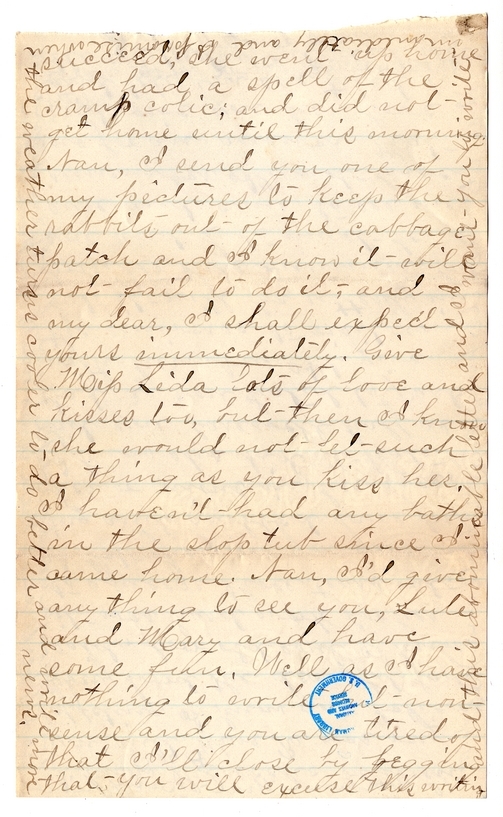 succeed; she went up home
and had a spell of the
cramp colic; and did not
get home until this morning.
Nan, I send you one of
my pictures to keep the
rabbits out of the cabbage
patch and I know it will
not fail to do it, and
my dear, I shall expect
yours immediately. Give
Miss Lida lots of love and
kisses too, but then I know
she would not let such
a thing as you kiss her.
I haven't had any bath
in the slop tub since I
came home. Nan, I'd give
anything to see you, Lute
and Mary and have
some fun. Well as I have
nothing to write but non-
sense and you are tired of
that I'll close by begging
that you will excuse this writing
and this abominable letter and I want you to write
immediately and I promise when
the weather turns cooler to do better and write more
news.
LIBRARY
U.S. GOVERNMENT